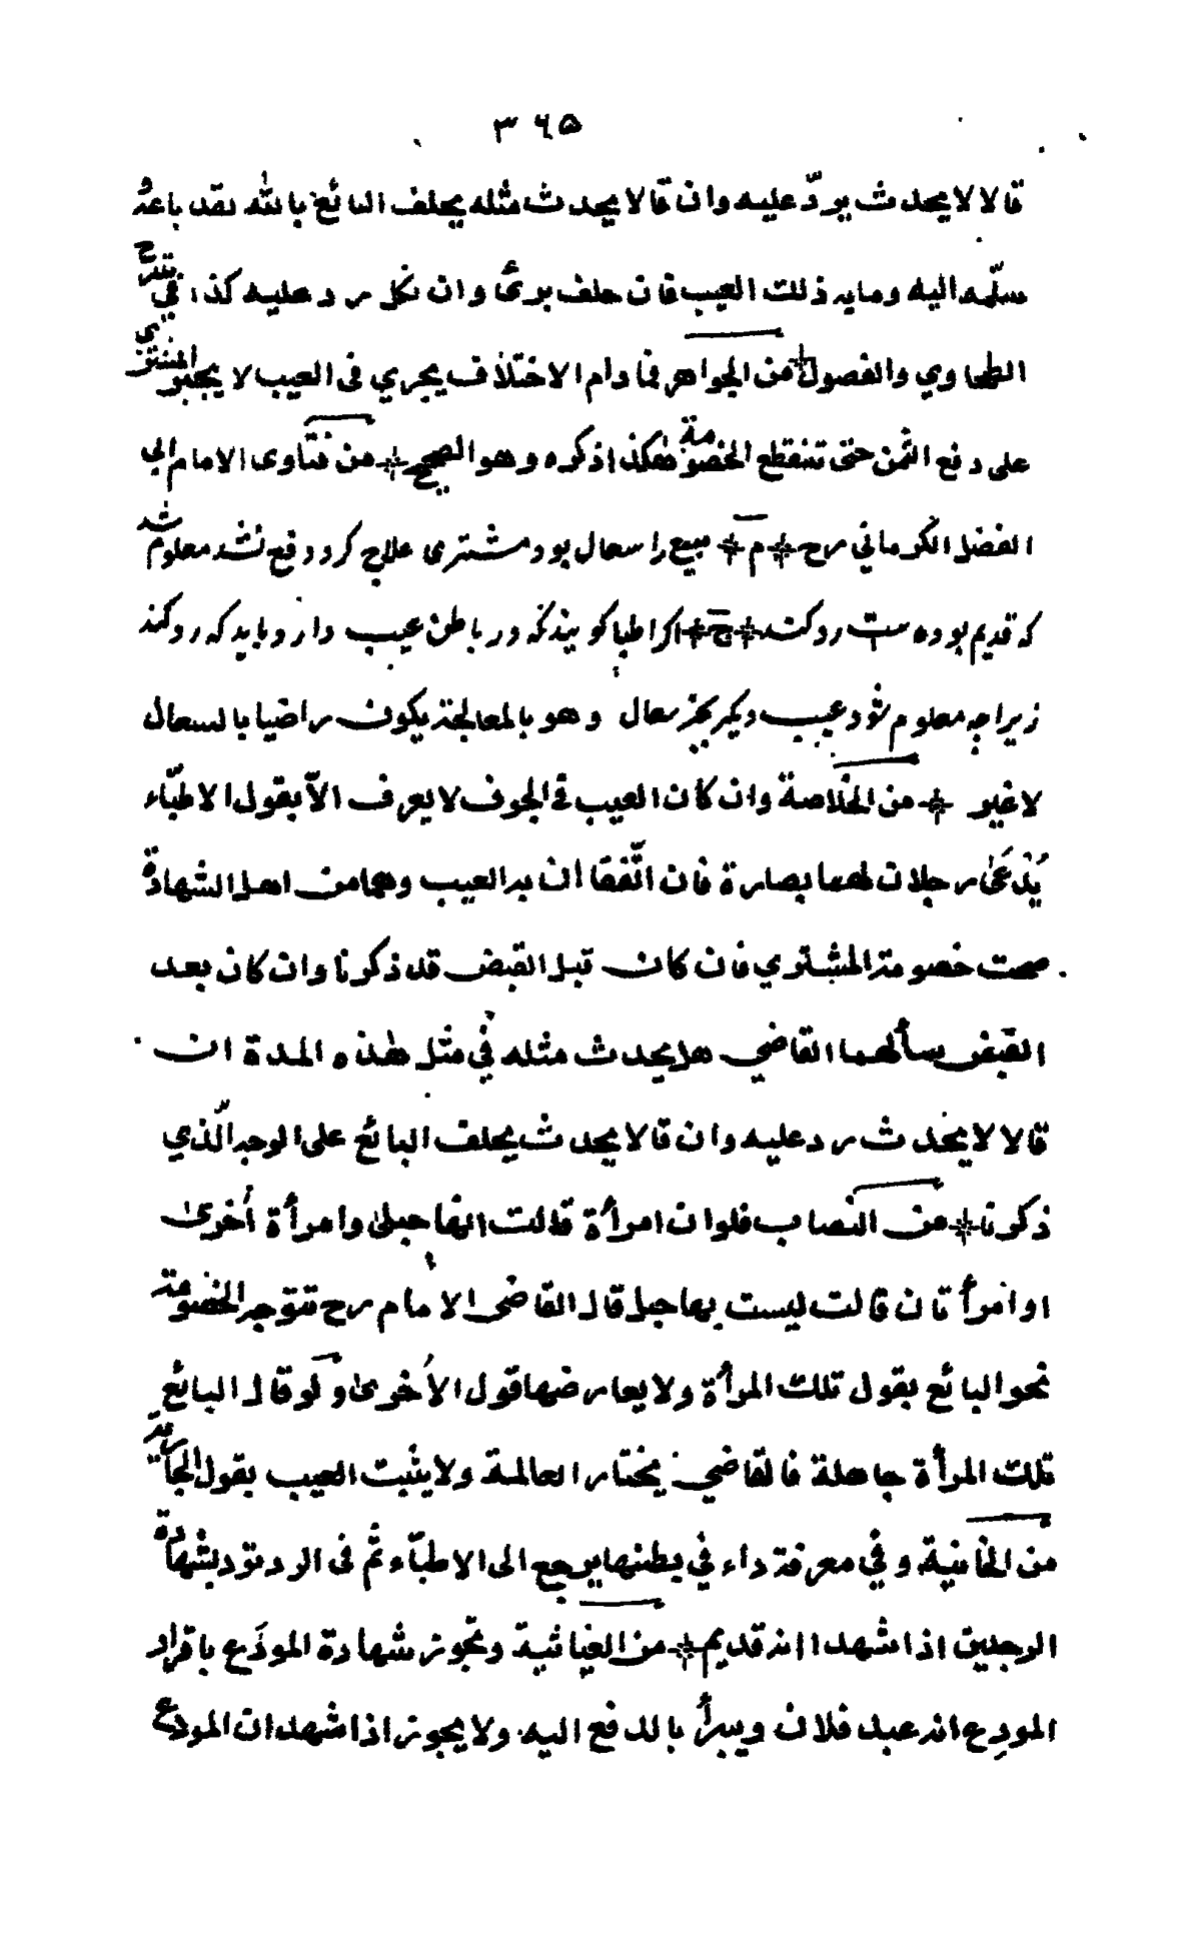 ٣٦٥
قالا لا يحدث يردّ عليه وان قالا يحدث مثله يحلف البائع بالله لقد باعه
سلّمه اليه وما به ذلك العيب فان حلف برئ وان نكل رد عليه كذا في شرح
الطحاوي والفصول من الجواهر فما دام الاختلاف يجري في العيب لا يجبر المشتري
على دفع الثمن حتى تنقطع الخصومة هكذا ذكره وهو الصحيح من فتاوى الامام ابي
الفضل الكرماني رح م مبيع را سعال بود مشترى علاج كرد دفع نشد معلوم شد
كه قديم بوده ست رد كند ج اكر اطبا كويند كه در باطن عيب دارد بايد كه رد كند
زيراچه معلوم شود عيب ديكر بجز سعال وهو بالمعالجة يكون راضيا بالسعال
لا غير من الخلاصة وان كان العيب في الجوف لا يعرف الاّ بقول الاطبّاء
يُدْعَى رجلان لهما بصارة فان اتّفقا ان به العيب وهما من اهل الشهادة
صحت خصومة المشتري فان كان قبل القبض قد ذكرنا وان كان بعد
القبض سألهما القاضي هل يحدث مثله في مثل هذه المدة ان
قالا لا يحدث رد عليه وان قالا يحدث يحلف البائع على الوجه الّذي
ذكرنا من النصاب فلو ان امرأة قالت انها حبلى وامرأة أخرى
او امرأتان قالت ليست بها حبل قال القاضى الامام رح تتوجه الخصومة
نحو البائع بقول تلك المرأة ولا يعارضها قول الأخرى ولو قال البائع
تلك المرأة جاهلة فالقاضي يختار العالمة ولا يثبت العيب بقول الجارية
من الخانية وفي معرفة داء في بطنها يرجع الى الاطبّاء ثم فى الرد ترد بشهادة
الرجلين اذا شهدا انه قديم من الغياثية وتجوز شهادة المودَع باقرار
المودِع انه عبد فلان ويبرأ بالدفع اليه ولا يجوز اذا شهد ان المودع